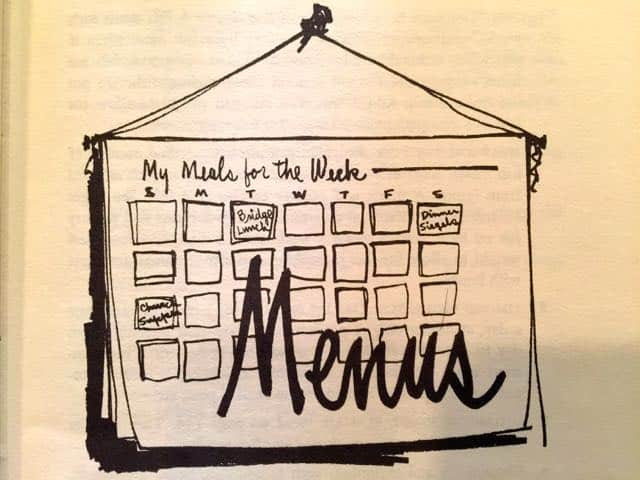 My Meals for the Week
S M T W T F S
Bridge
Lunch
Dinner
Siegels
Church
Supper
Menus